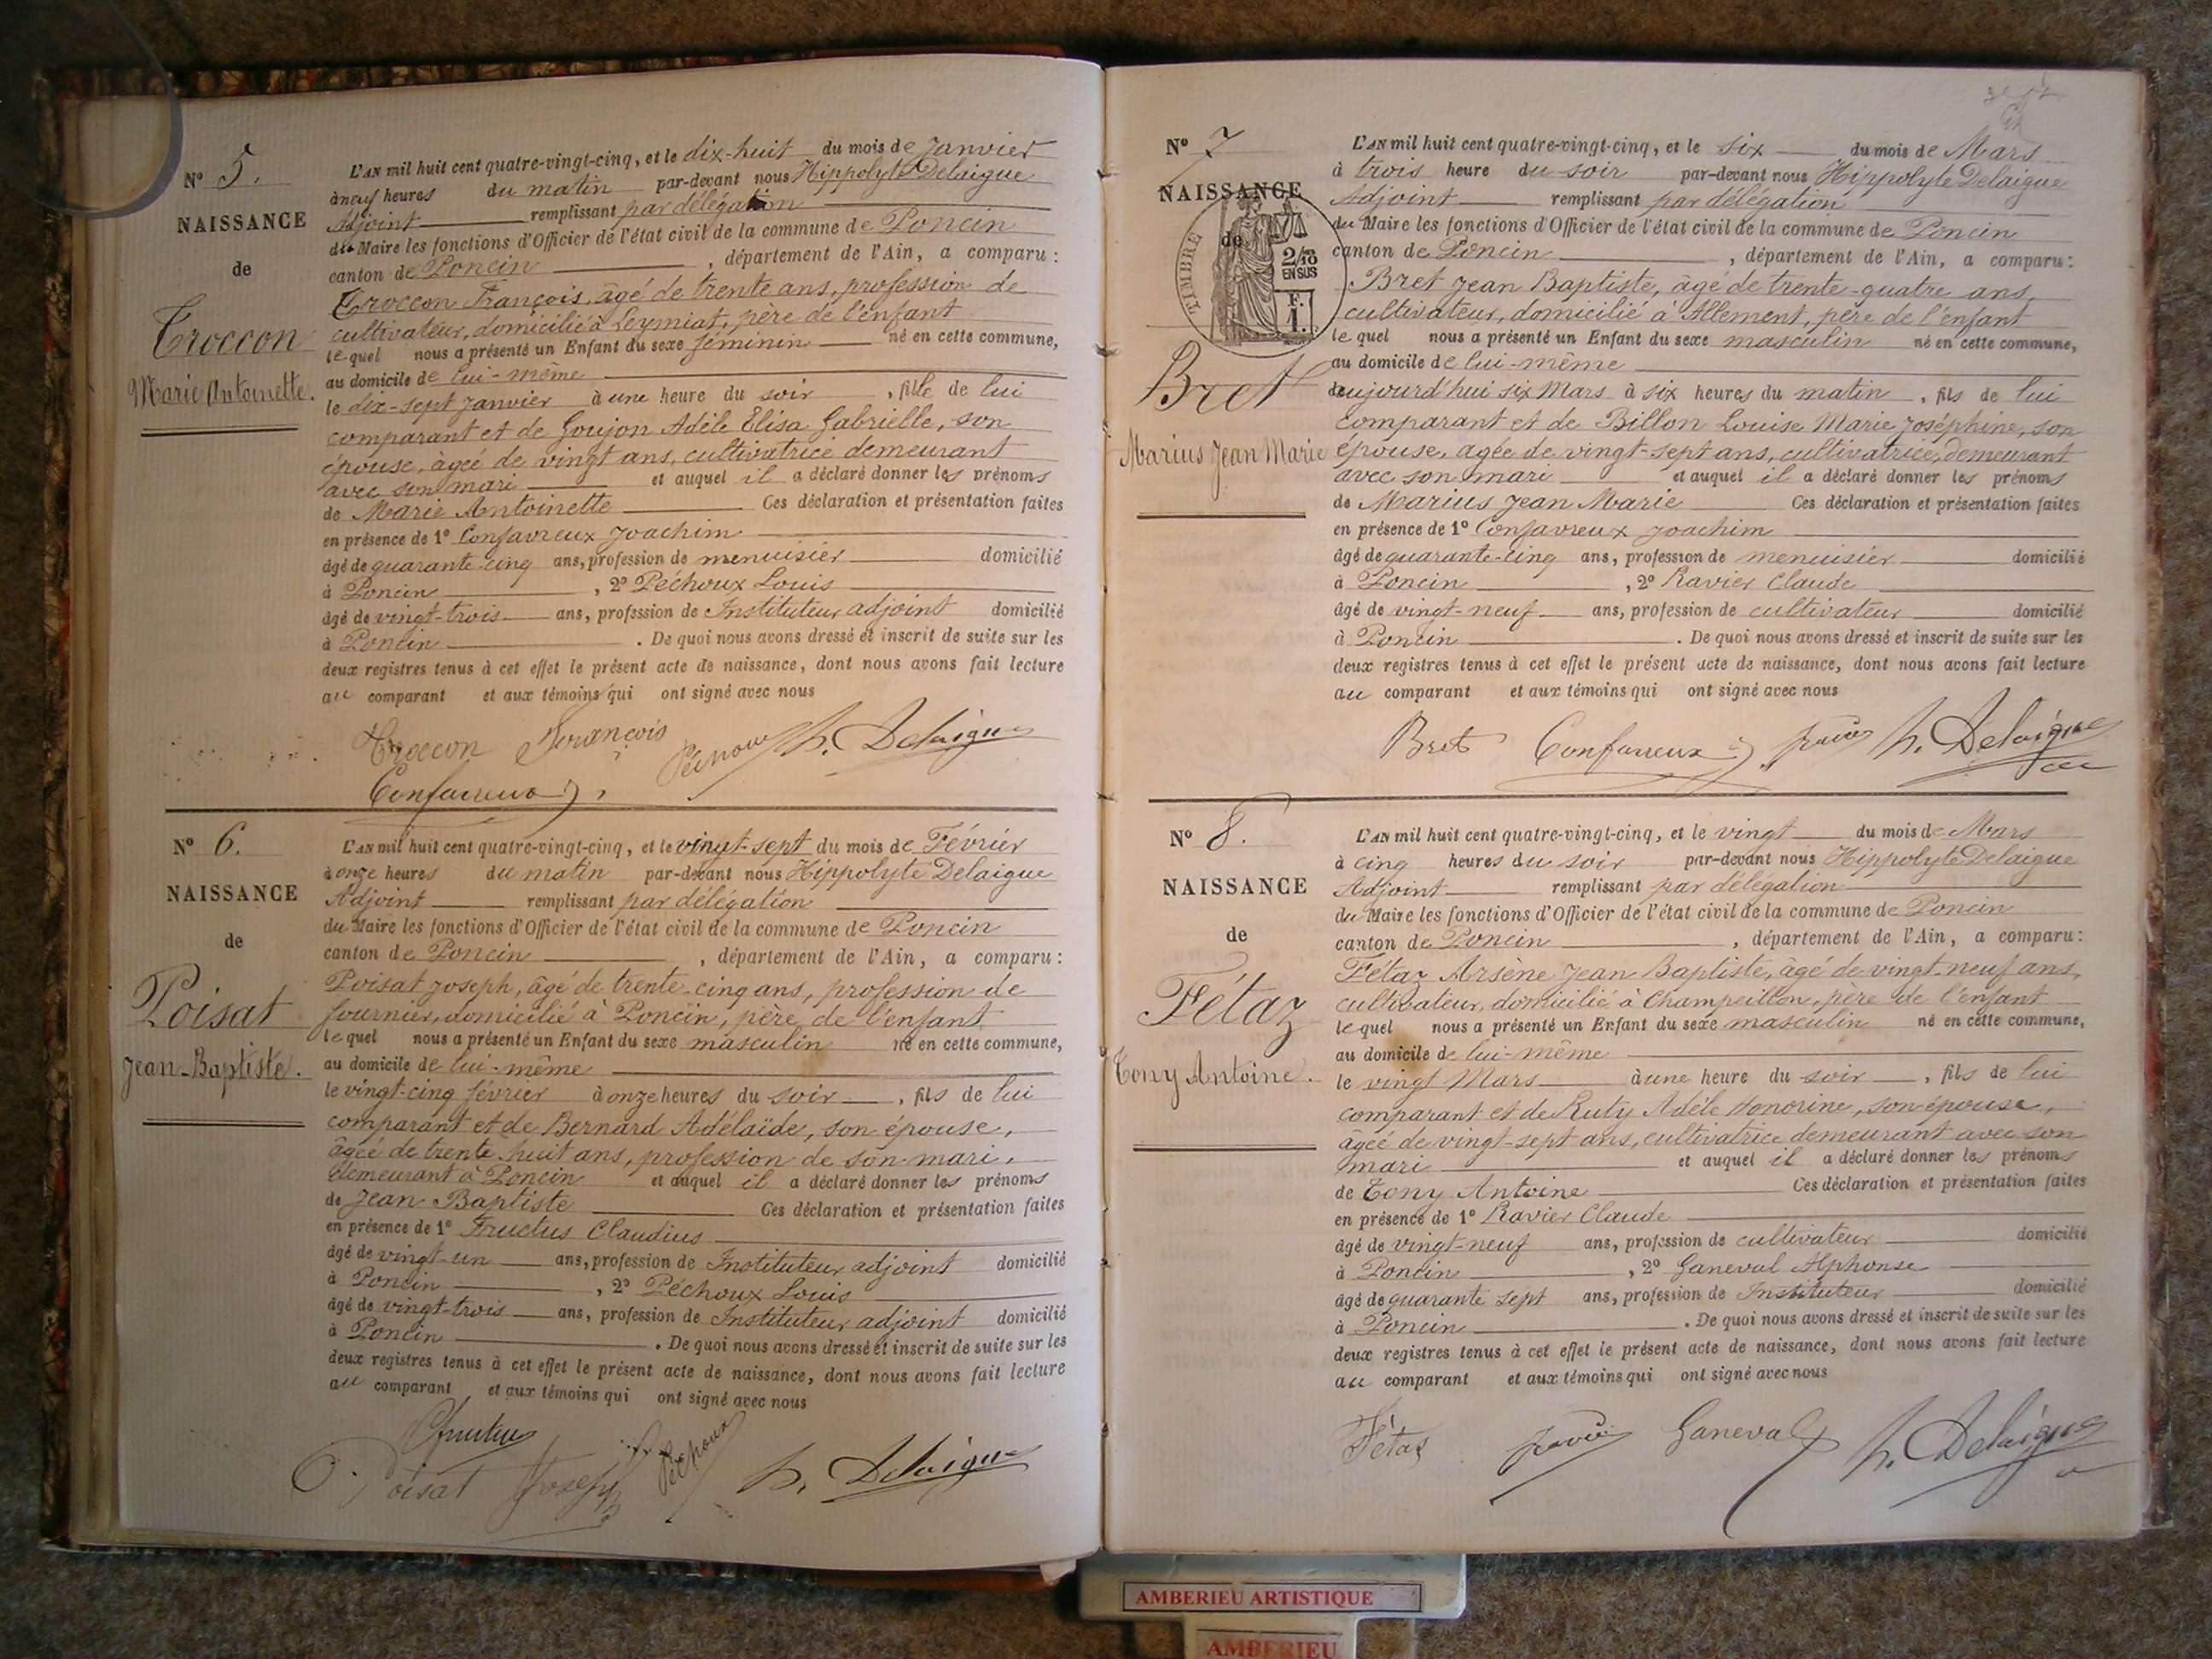 N° 5.
NAISSANCE
de
Troccon
Marie Antoinette.
L'AN mil huit cent quatre-vingt-cinq, et le dix-huit du mois de Janvier
à neuf heures du matin par-devant nous Hippolyte Delaigue
Adjoint remplissant par délégation
du Maire les fonctions d'Officier de l'état civil de la commune de Poncin
canton de Poncin, département de l'Ain, a comparu :
Troccon François, âgé de trente ans, profession de
cultivateur, domicilié à Leymiat, père de l'enfant
lequel nous a présenté un Enfant du sexe féminin né en cette commune,
au domicile de lui-même
le dix-sept Janvier à une heure du soir, fille de lui
comparant et de Goujon Adèle Elisa Gabrielle, son
épouse, âgée de vingt ans, cultivatrice demeurant
avec son mari et auquel il a déclaré donner les prénoms
de Marie Antoinette Ces déclaration et présentation faites
en présence de 1° Confavreux Joachim
âgé de quarante-cinq ans, profession de menuisier domicilié
à Poncin, 2° Péchoux Louis
âgé de vingt-trois ans, profession de Instituteur adjoint domicilié
à Poncin. De quoi nous avons dressé et inscrit de suite sur les
deux registres tenus à cet effet le présent acte de naissance, dont nous avons fait lecture
au comparant et aux témoins qui ont signé avec nous
Troccon François Péchoux h. Delaigue
Confavreux J.
N° 6.
NAISSANCE
de
Poisat
Jean-Baptiste.
L'AN mil huit cent quatre-vingt-cinq, et le vingt-sept du mois de Février
à onze heures du matin par-devant nous Hippolyte Delaigue
Adjoint remplissant par délégation
du Maire les fonctions d'Officier de l'état civil de la commune de Poncin
canton de Poncin, département de l'Ain, a comparu :
Poisat Joseph, âgé de trente-cinq ans, profession de
fournier, domicilié à Poncin, père de l'enfant
lequel nous a présenté un Enfant du sexe masculin né en cette commune,
au domicile de lui-même
le vingt-cinq février à onze heures du soir, fils de lui
comparant et de Bernard Adélaïde, son épouse,
âgée de trente-huit ans, profession de son mari,
demeurant à Poncin et auquel il a déclaré donner les prénoms
de Jean Baptiste Ces déclaration et présentation faites
en présence de 1° Fructus Claudius
âgé de vingt-un ans, profession de Instituteur adjoint domicilié
à Poncin, 2° Péchoux Louis
âgé de vingt-trois ans, profession de Instituteur adjoint domicilié
à Poncin. De quoi nous avons dressé et inscrit de suite sur les
deux registres tenus à cet effet le présent acte de naissance, dont nous avons fait lecture
au comparant et aux témoins qui ont signé avec nous
Fructus
Poisat Joseph Péchoux h. Delaigue
N° 7
NAISSANCE
de
TIMBRE
2/10
EN SUS
F.
1.
Bret
Marius Jean Marie
L'AN mil huit cent quatre-vingt-cinq, et le six du mois de Mars
à trois heure du soir par-devant nous Hippolyte Delaigue
Adjoint remplissant par délégation
du Maire les fonctions d'Officier de l'état civil de la commune de Poncin
canton de Poncin, département de l'Ain, a comparu :
Bret Jean Baptiste, âgé de trente-quatre ans,
cultivateur, domicilié à Allement, père de l'enfant
lequel nous a présenté un Enfant du sexe masculin né en cette commune,
au domicile de lui-même
aujourd'hui six Mars à six heures du matin, fils de lui
comparant et de Billon Louise Marie Joséphine, son
épouse, âgée de vingt-sept ans, cultivatrice, demeurant
avec son mari et auquel il a déclaré donner les prénoms
de Marius Jean Marie Ces déclaration et présentation faites
en présence de 1° Confavreux Joachim
âgé de quarante-cinq ans, profession de menuisier domicilié
à Poncin, 2° Ravier Claude
âgé de vingt-neuf ans, profession de cultivateur domicilié
à Poncin. De quoi nous avons dressé et inscrit de suite sur les
deux registres tenus à cet effet le présent acte de naissance, dont nous avons fait lecture
au comparant et aux témoins qui ont signé avec nous
Bret Confavreux J. Ravier h. Delaigue
N° 8.
NAISSANCE
de
Fétaz
Tony Antoine.
L'AN mil huit cent quatre-vingt-cinq, et le vingt du mois de Mars
à cinq heures du soir par-devant nous Hippolyte Delaigue
Adjoint remplissant par délégation
du Maire les fonctions d'Officier de l'état civil de la commune de Poncin
canton de Poncin, département de l'Ain, a comparu :
Fétaz Arsène Jean Baptiste, âgé de vingt-neuf ans,
cultivateur, domicilié à Champeillon, père de l'enfant
lequel nous a présenté un Enfant du sexe masculin né en cette commune,
au domicile de lui-même
le vingt Mars à une heure du soir, fils de lui
comparant et de Ruty Adèle Honorine, son épouse,
âgée de vingt-sept ans, cultivatrice demeurant avec son
mari et auquel il a déclaré donner les prénoms
de Tony Antoine Ces déclaration et présentation faites
en présence de 1° Ravier Claude
âgé de vingt-neuf ans, profession de cultivateur domicilié
à Poncin, 2° Ganeval Alphonse
âgé de quarante sept ans, profession de Instituteur domicilié
à Poncin. De quoi nous avons dressé et inscrit de suite sur les
deux registres tenus à cet effet le présent acte de naissance, dont nous avons fait lecture
au comparant et aux témoins qui ont signé avec nous
Fétaz Ravier Ganeval h. Delaigue
AMBERIEU ARTISTIQUE
AMBERIEU